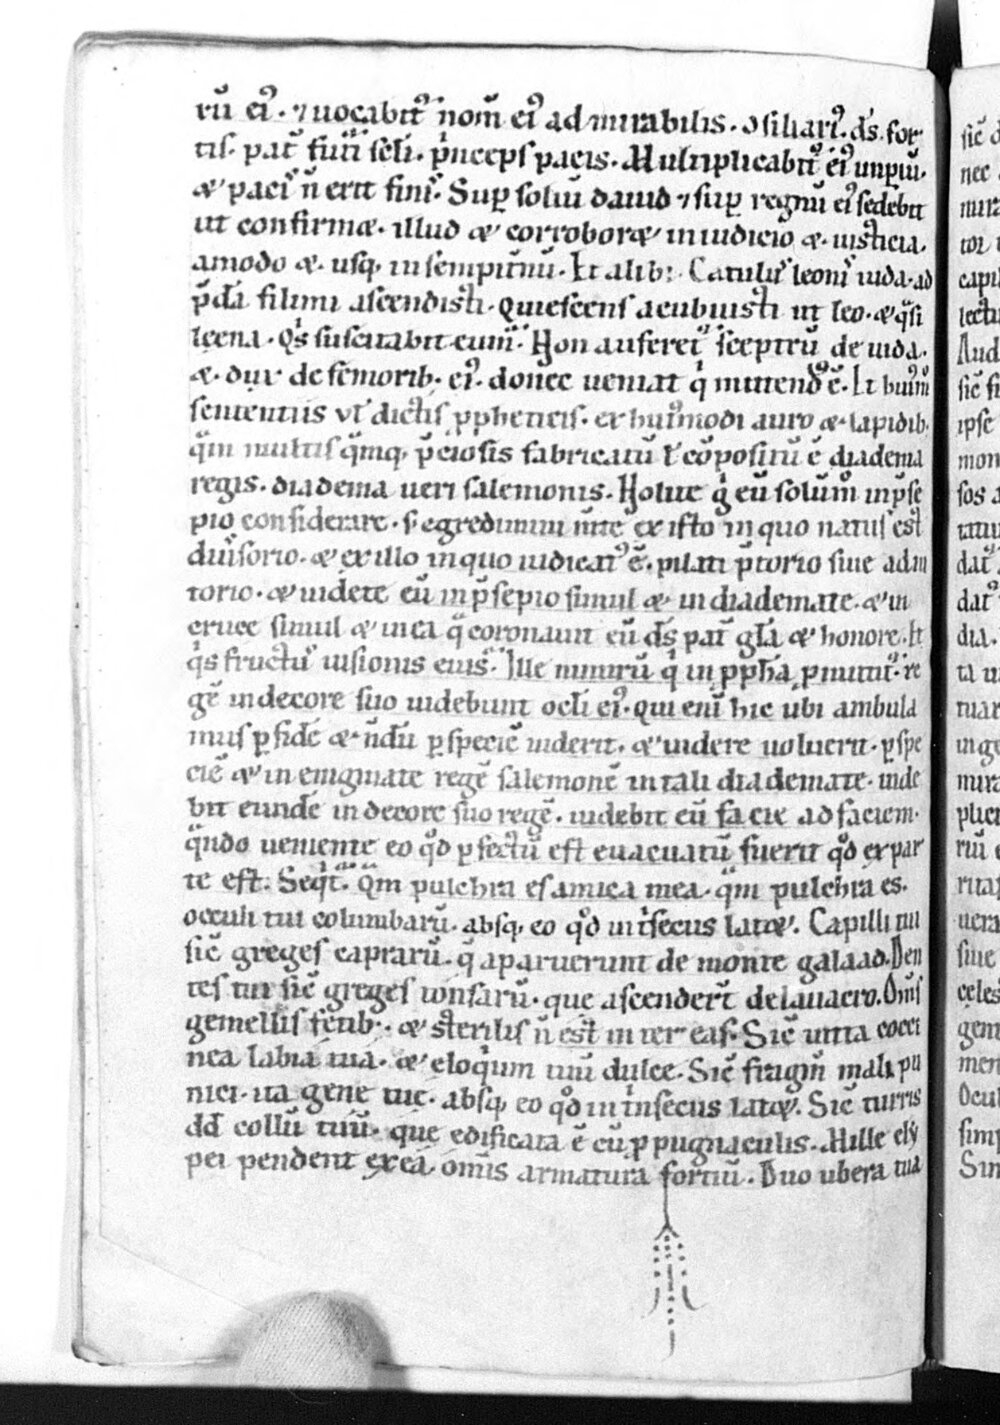 rū ei᾽. ⁊ uocabit᾽ nom̄ ei᾽ admirabilis. ɔsiliari᾽. d̄s. for
tis. pat᾽ futi᾽ scl̄i. p̄nceps pacis. Multiplicabit᾽ ei᾽ unꝑiū.
& paci᾽ n̄ erit fini᾽. Suꝑ soliū dauid ⁊ suꝑ regnū ei᾽ sedebit
ut confirm&. illud & corrobor& in iudicio &. iusticia.
amodo &. usq; in sempit᾽nū. Et alibi. Catulus leoni᾽ iuda. ad
p̄dā filimi ascendisti. quiescens acubuisti ut leo. & q̄si
leena. Qͥs suscitabit eum. Non auferet᾽ sceptrū de iuda.
&. dux de femorib; ei᾽. donec ueniat qͥ mittend᾽ ē. Et hui᾽m̊
sententiis ut᾽ dictis ꝓpheticis. ex hui᾽modi auro &. lapidib;
q̄m multis q̄mq; p̄ciosis fabricatū ł cōpositū ē diadema
regis. diadema ueri salemonis. Nolite g̊ eū solum̊ in p̄se
pio considerare. sꝫ egredimini m̄te ex isto in quo natus est
diu᾽sorio. & ex illo in quo iudicat᾽ ē. pilati p̄torio siue adiu
torio. & uidete eū in p̄sepio simul & in diademate. & in
cruce simul & in ea q̄ coronauit eū d̄s pat᾽ gl̄a & honore. Et
qͥs fructus uisionis eius. Ille nimirū qͥ in ꝓph̄a ꝓmittit᾽. re
gē in decore suo uidebunt ocl̄i ei᾽. qui eni᾽ hic ubi ambula
mus ꝑ fidē & n̄dū ꝑ speciē uiderit. & uidere uoluerit. ꝑ spe
ciē & in enigmate regē salemonē in tali diademate. uide
bit eundē in decore suo regē. uidebit eū facie ad faciem.
q̄ndo ueniente eo q̊d ꝑfectū est euacuatū fuerit q̊d ex par
te est. Seqͥt᾽. Q̄m pulchra es amica mea. q̄m pulchra es.
occuli tui columbarū. absq; eo q̊d intͥsecus lat&. Capilli tui
sic̄ greges caprarū. q̄ aparuerunt de monte galaad. Den
tes tui sic̄ greges tonsarū. que ascender̄t de lauacro. Om̄s
gemellis fetib;. & sterilis n̄ est inter eas. Sic̄ uitta cocci
nea labia tua. & eloqͥum tuū dulce. Sic̄ fragm̄ mali pu
nici. ita gene tue. absq; eo q̊d intͥnsecus lat&. Sic̄ turris
dd̄ collū tuū. que edificata ē cū ꝓpugnaculis. Mille cly
pei pendent ex ea. om̄is armatura fortiū. Duo ubera tua